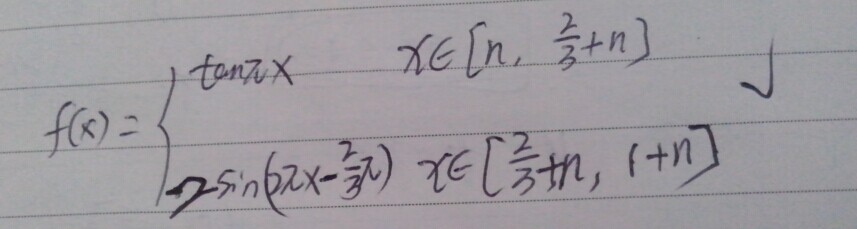 f(x) = { tanπx x∈[n, 2/3+n]
2sin(2πx-2/3π) x∈[2/3+n, 1+n]